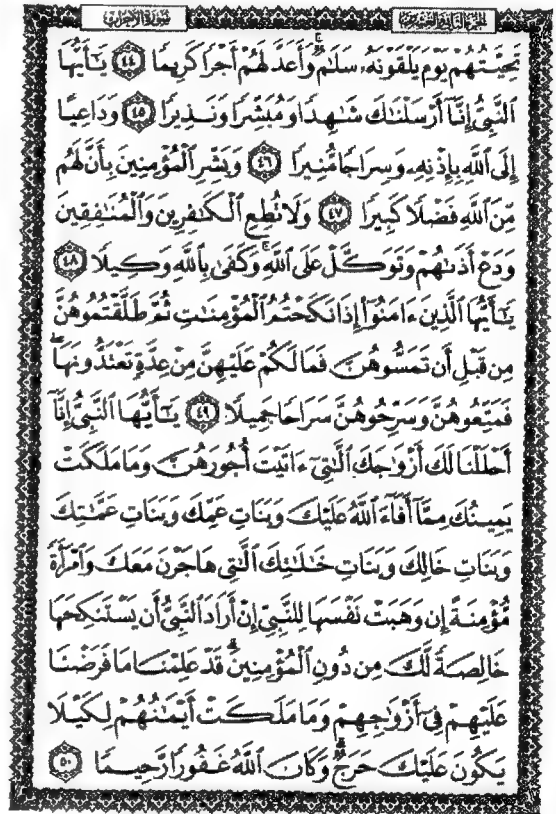 سُورَةُ الأَحْزَابِ
الجُزْءُ الثَّانِي وَالعِشْرُونَ
تَحِيَّتُهُمْ يَوْمَ يَلْقَوْنَهُۥ سَلَٰمٌ ۚ وَأَعَدَّ لَهُمْ أَجْرًا كَرِيمًا ﴿٤٤﴾ يَٰٓأَيُّهَا
ٱلنَّبِىُّ إِنَّآ أَرْسَلْنَٰكَ شَٰهِدًا وَمُبَشِّرًا وَنَذِيرًا ﴿٤٥﴾ وَدَاعِيًا
إِلَى ٱللَّهِ بِإِذْنِهِۦ وَسِرَاجًا مُّنِيرًا ﴿٤٦﴾ وَبَشِّرِ ٱلْمُؤْمِنِينَ بِأَنَّ لَهُم
مِّنَ ٱللَّهِ فَضْلًا كَبِيرًا ﴿٤٧﴾ وَلَا تُطِعِ ٱلْكَٰفِرِينَ وَٱلْمُنَٰفِقِينَ
وَدَعْ أَذَىٰهُمْ وَتَوَكَّلْ عَلَى ٱللَّهِ ۚ وَكَفَىٰ بِٱللَّهِ وَكِيلًا ﴿٤٨﴾
يَٰٓأَيُّهَا ٱلَّذِينَ ءَامَنُوٓا۟ إِذَا نَكَحْتُمُ ٱلْمُؤْمِنَٰتِ ثُمَّ طَلَّقْتُمُوهُنَّ
مِن قَبْلِ أَن تَمَسُّوهُنَّ فَمَا لَكُمْ عَلَيْهِنَّ مِنْ عِدَّةٍ تَعْتَدُّونَهَا ۖ
فَمَتِّعُوهُنَّ وَسَرِّحُوهُنَّ سَرَاحًا جَمِيلًا ﴿٤٩﴾ يَٰٓأَيُّهَا ٱلنَّبِىُّ إِنَّآ
أَحْلَلْنَا لَكَ أَزْوَٰجَكَ ٱلَّٰتِىٓ ءَاتَيْتَ أُجُورَهُنَّ وَمَا مَلَكَتْ
يَمِينُكَ مِمَّآ أَفَآءَ ٱللَّهُ عَلَيْكَ وَبَنَاتِ عَمِّكَ وَبَنَاتِ عَمَّٰتِكَ
وَبَنَاتِ خَالِكَ وَبَنَاتِ خَٰلَٰتِكَ ٱلَّٰتِى هَاجَرْنَ مَعَكَ وَٱمْرَأَةً
مُّؤْمِنَةً إِن وَهَبَتْ نَفْسَهَا لِلنَّبِىِّ إِنْ أَرَادَ ٱلنَّبِىُّ أَن يَسْتَنكِحَهَا
خَالِصَةً لَّكَ مِن دُونِ ٱلْمُؤْمِنِينَ ۗ قَدْ عَلِمْنَا مَا فَرَضْنَا
عَلَيْهِمْ فِىٓ أَزْوَٰجِهِمْ وَمَا مَلَكَتْ أَيْمَٰنُهُمْ لِكَيْلَا
يَكُونَ عَلَيْكَ حَرَجٌ ۗ وَكَانَ ٱللَّهُ غَفُورًا رَّحِيمًا ﴿٥٠﴾